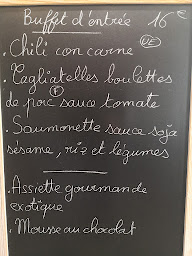 Buffet d'entrée 16 €
. Chili con carne (VE)
. Tagliatelles boulettes
de porc sauce tomate
(F)
. Saumonette sauce soja
sésame, riz et légumes
. Assiette gourmande
exotique
. Mousse au chocolat